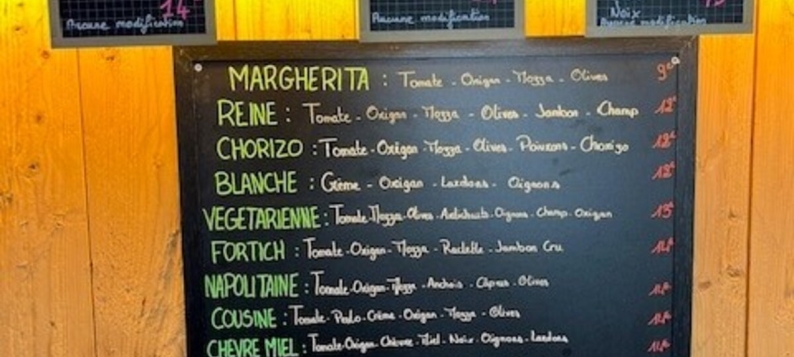 14
Aucune modification
Aucune modification
Noix
Aucune modification
MARGHERITA : Tomate - Origan - Mozza - Olives 9€
REINE : Tomate - Origan - Mozza - Olives - Jambon - Champ 12€
CHORIZO : Tomate - Origan - Mozza - Olives - Poivrons - Chorizo 12€
BLANCHE : Crème - Origan - Lardons - Oignons 12€
VEGETARIENNE : Tomate - Mozza - Olives - Artichauts - Oignons - Champ - Origan 13€
FORTICH : Tomate - Origan - Mozza - Raclette - Jambon Cru 14€
NAPOLITAINE : Tomate - Origan - Mozza - Anchois - Câpres - Olives 14€
COUSINE : Tomate - Pesto - Crème - Origan - Mozza - Olives 14€
CHEVRE MIEL : Tomate - Origan - Chèvre - Miel - Noix - Oignons - Lardons 14€